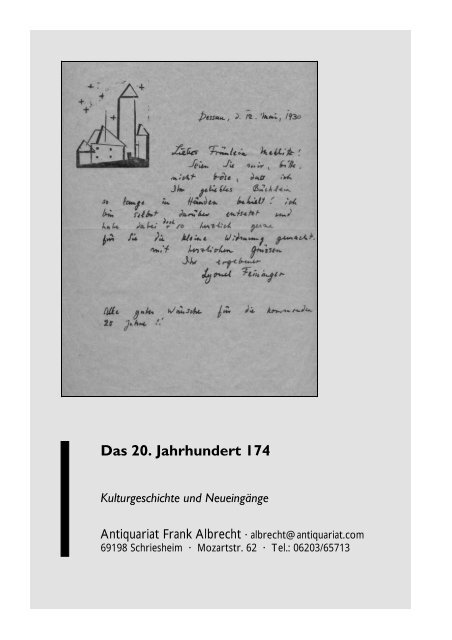 Dessau, d. 12. Mai, 1930
Liebes Fräulein
Seien Sie mir, bitte,
nicht böse, dass ich
Ihr geliebtes Büchlein
so lange in Händen behielt! ich
bin selbst darüber entsetzt und
habe dabei doch so herzlich gerne
für Sie die kleine Widmung gemacht.
mit herzlichen Grüssen
Ihr ergebener
Lyonel Feininger
Alle guten Wünsche für die kommenden
20 Jahre!
Das 20. Jahrhundert 174
Kulturgeschichte und Neueingänge
Antiquariat Frank Albrecht · albrecht@antiquariat.com
69198 Schriesheim · Mozartstr. 62 · Tel.: 06203/65713